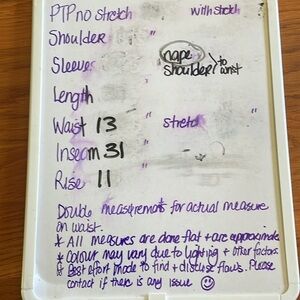 PTP no stretch with stretch
Shoulder "
Sleeves nape
shoulder > to wrist
Length "
Waist 13 " stretch "
Inseam 31 "
Rise 11 "
Double measurement for actual measure
on waist.
* All measures are done flat + are approximate
* Colour may vary due to lighting + other factors
* Best effort made to find + disclose flaws. Please
contact if there is any issue ☺